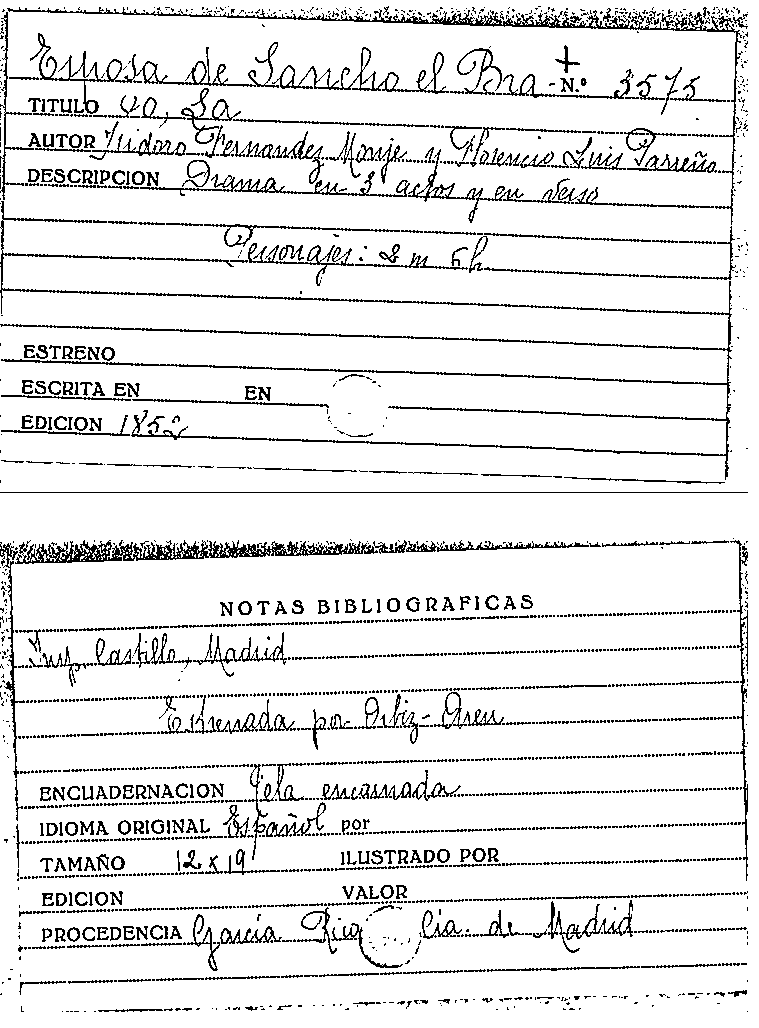 Esposa de Sancho el Bra- N.º 3575
TITULO vo, La
AUTOR Isidoro Fernandez Monje y Florencio Luis Parreño
DESCRIPCION Drama en 3 actos y en verso
Personajes: 2 m 5 h
ESTRENO
ESCRITA EN EN
EDICION 1852
NOTAS BIBLIOGRAFICAS
Imp. Castillo, Madrid
Estrenada por Orbiz-Aren
ENCUADERNACION Tela encarnada
IDIOMA ORIGINAL Español por
TAMAÑO 12 x 19 ILUSTRADO POR
EDICION VALOR
PROCEDENCIA García Rico Cia. de Madrid